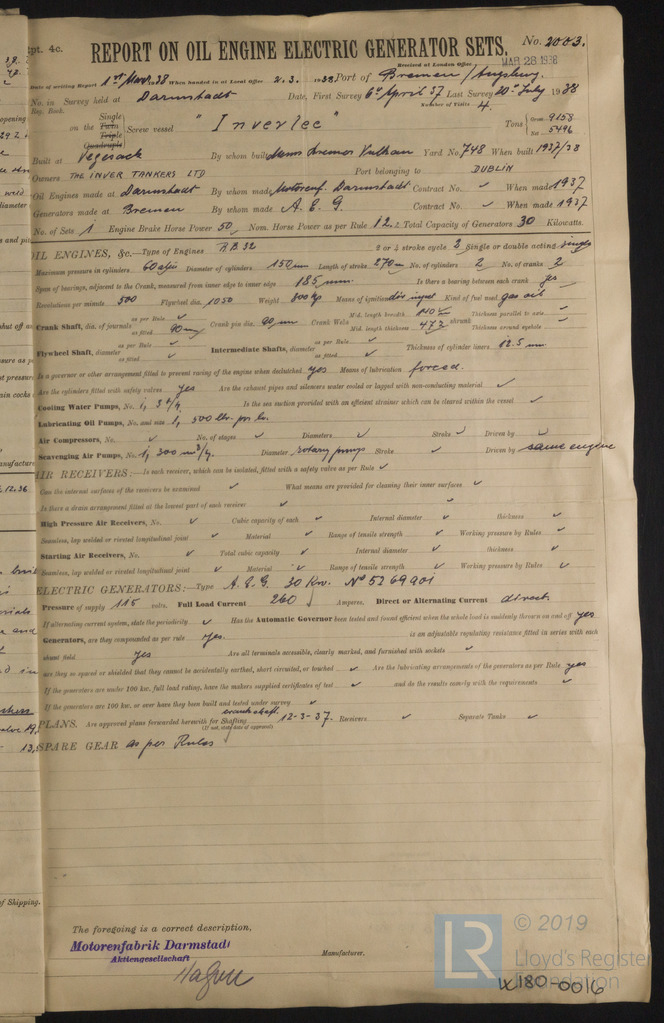 Rpt. 4c.
REPORT ON OIL ENGINE ELECTRIC GENERATOR SETS. No. 2003.
Received at London Office MAR 28 1938
Date of writing Report 1st March 1938 When handed in at Local Office 2.3. 1938 Port of Bremen/Augsburg
No. in Survey held at Darmstadt Date, First Survey 6th April 37 Last Survey 20th July 1938
Reg. Book. Number of Visits 4.
on the Single Twin Triple Quadruple Screw vessel "Inverlee" Tons Gross 9158 Net 5496
Built at Vegesack By whom built Bremer Vulkan Yard No. 748 When built 1937/38
Owners THE INVER TANKERS LTD Port belonging to DUBLIN
Oil Engines made at Darmstadt By whom made Motorenf. Darmstadt Contract No. ✓ When made 1937
Generators made at Bremen By whom made A.E.G. Contract No. ✓ When made 1937
No. of Sets 1 Engine Brake Horse Power 50 Nom. Horse Power as per Rule 12.2 Total Capacity of Generators 30 Kilowatts.
OIL ENGINES, &c.—Type of Engines BB 32 2 or 4 stroke cycle 2 Single or double acting single
Maximum pressure in cylinders 60 Diameter of cylinders 150 mm Length of stroke 270 m No. of cylinders 2 No. of cranks 2
Span of bearings, adjacent to the Crank, measured from inner edge to inner edge 185 mm. Is there a bearing between each crank yes
Revolutions per minute 500 Flywheel dia. 1050 Weight 800 kg Means of ignition Kind of fuel used gas oil
Crank Shaft, dia. of journals as per Rule ✓ as fitted 90 mm Crank pin dia. 90 mm Crank Webs Mid. length breadth 140 Mid. length thickness 47½ Thickness parallel to axis ✓ shrunk Thickness around eyehole ✓
Flywheel Shaft, diameter as per Rule ✓ as fitted ✓ Intermediate Shafts, diameter as per Rule ✓ as fitted ✓ Thickness of cylinder liners 12.5 mm
Is a governor or other arrangement fitted to prevent racing of the engine when declutched yes Means of lubrication forced.
Are the cylinders fitted with safety valves yes Are the exhaust pipes and silencers water cooled or lagged with non-conducting material ✓
Cooling Water Pumps, No. 1, Is the sea suction provided with an efficient strainer which can be cleared within the vessel ✓
Lubricating Oil Pumps, No. and size 1, 500 ltr. per hr.
Air Compressors, No. ✓ No. of stages ✓ Diameters ✓ Stroke ✓ Driven by ✓
Scavenging Air Pumps, No. 1, 300 m³/h. Diameter rotary pump Stroke ✓ Driven by same engine
AIR RECEIVERS:—Is each receiver, which can be isolated, fitted with a safety valve as per Rule ✓
Can the internal surfaces of the receivers be examined ✓ What means are provided for cleaning their inner surfaces ✓
Is there a drain arrangement fitted at the lowest part of each receiver ✓
High Pressure Air Receivers, No. ✓ Cubic capacity of each ✓ Internal diameter ✓ thickness ✓
Seamless, lap welded or riveted longitudinal joint ✓ Material ✓ Range of tensile strength ✓ Working pressure by Rules ✓
Starting Air Receivers, No. ✓ Total cubic capacity ✓ Internal diameter ✓ thickness ✓
Seamless, lap welded or riveted longitudinal joint ✓ Material ✓ Range of tensile strength ✓ Working pressure by Rules ✓
ELECTRIC GENERATORS:—Type A.E.G. 30 Kw. No 5269901
Pressure of supply 115 volts. Full Load Current 260 Amperes. Direct or Alternating Current direct
If alternating current system, state the periodicity ✓ Has the Automatic Governor been tested and found efficient when the whole load is suddenly thrown on and off yes
Generators, are they compounded as per rule yes. is an adjustable regulating resistance fitted in series with each
shunt field yes Are all terminals accessible, clearly marked, and furnished with sockets ✓
are they so spaced or shielded that they cannot be accidentally earthed, short circuited, or touched ✓ Are the lubricating arrangements of the generators as per Rule yes
If the generators are under 100 kw. full load rating, have the makers supplied certificates of test ✓ and do the results comply with the requirements ✓
If the generators are 100 kw. or over have they been built and tested under survey ✓
PLANS. Are approved plans forwarded herewith for Shafting crankshaft. 12-3-37. Receivers ✓ Separate Tanks ✓
(If not, state date of approval)
SPARE GEAR as per Rules
The foregoing is a correct description,
Motorenfabrik Darmstadt
Aktiengesellschaft
Manufacturer.
LR © 2019
Lloyd's Register
Foundation
W180-0016